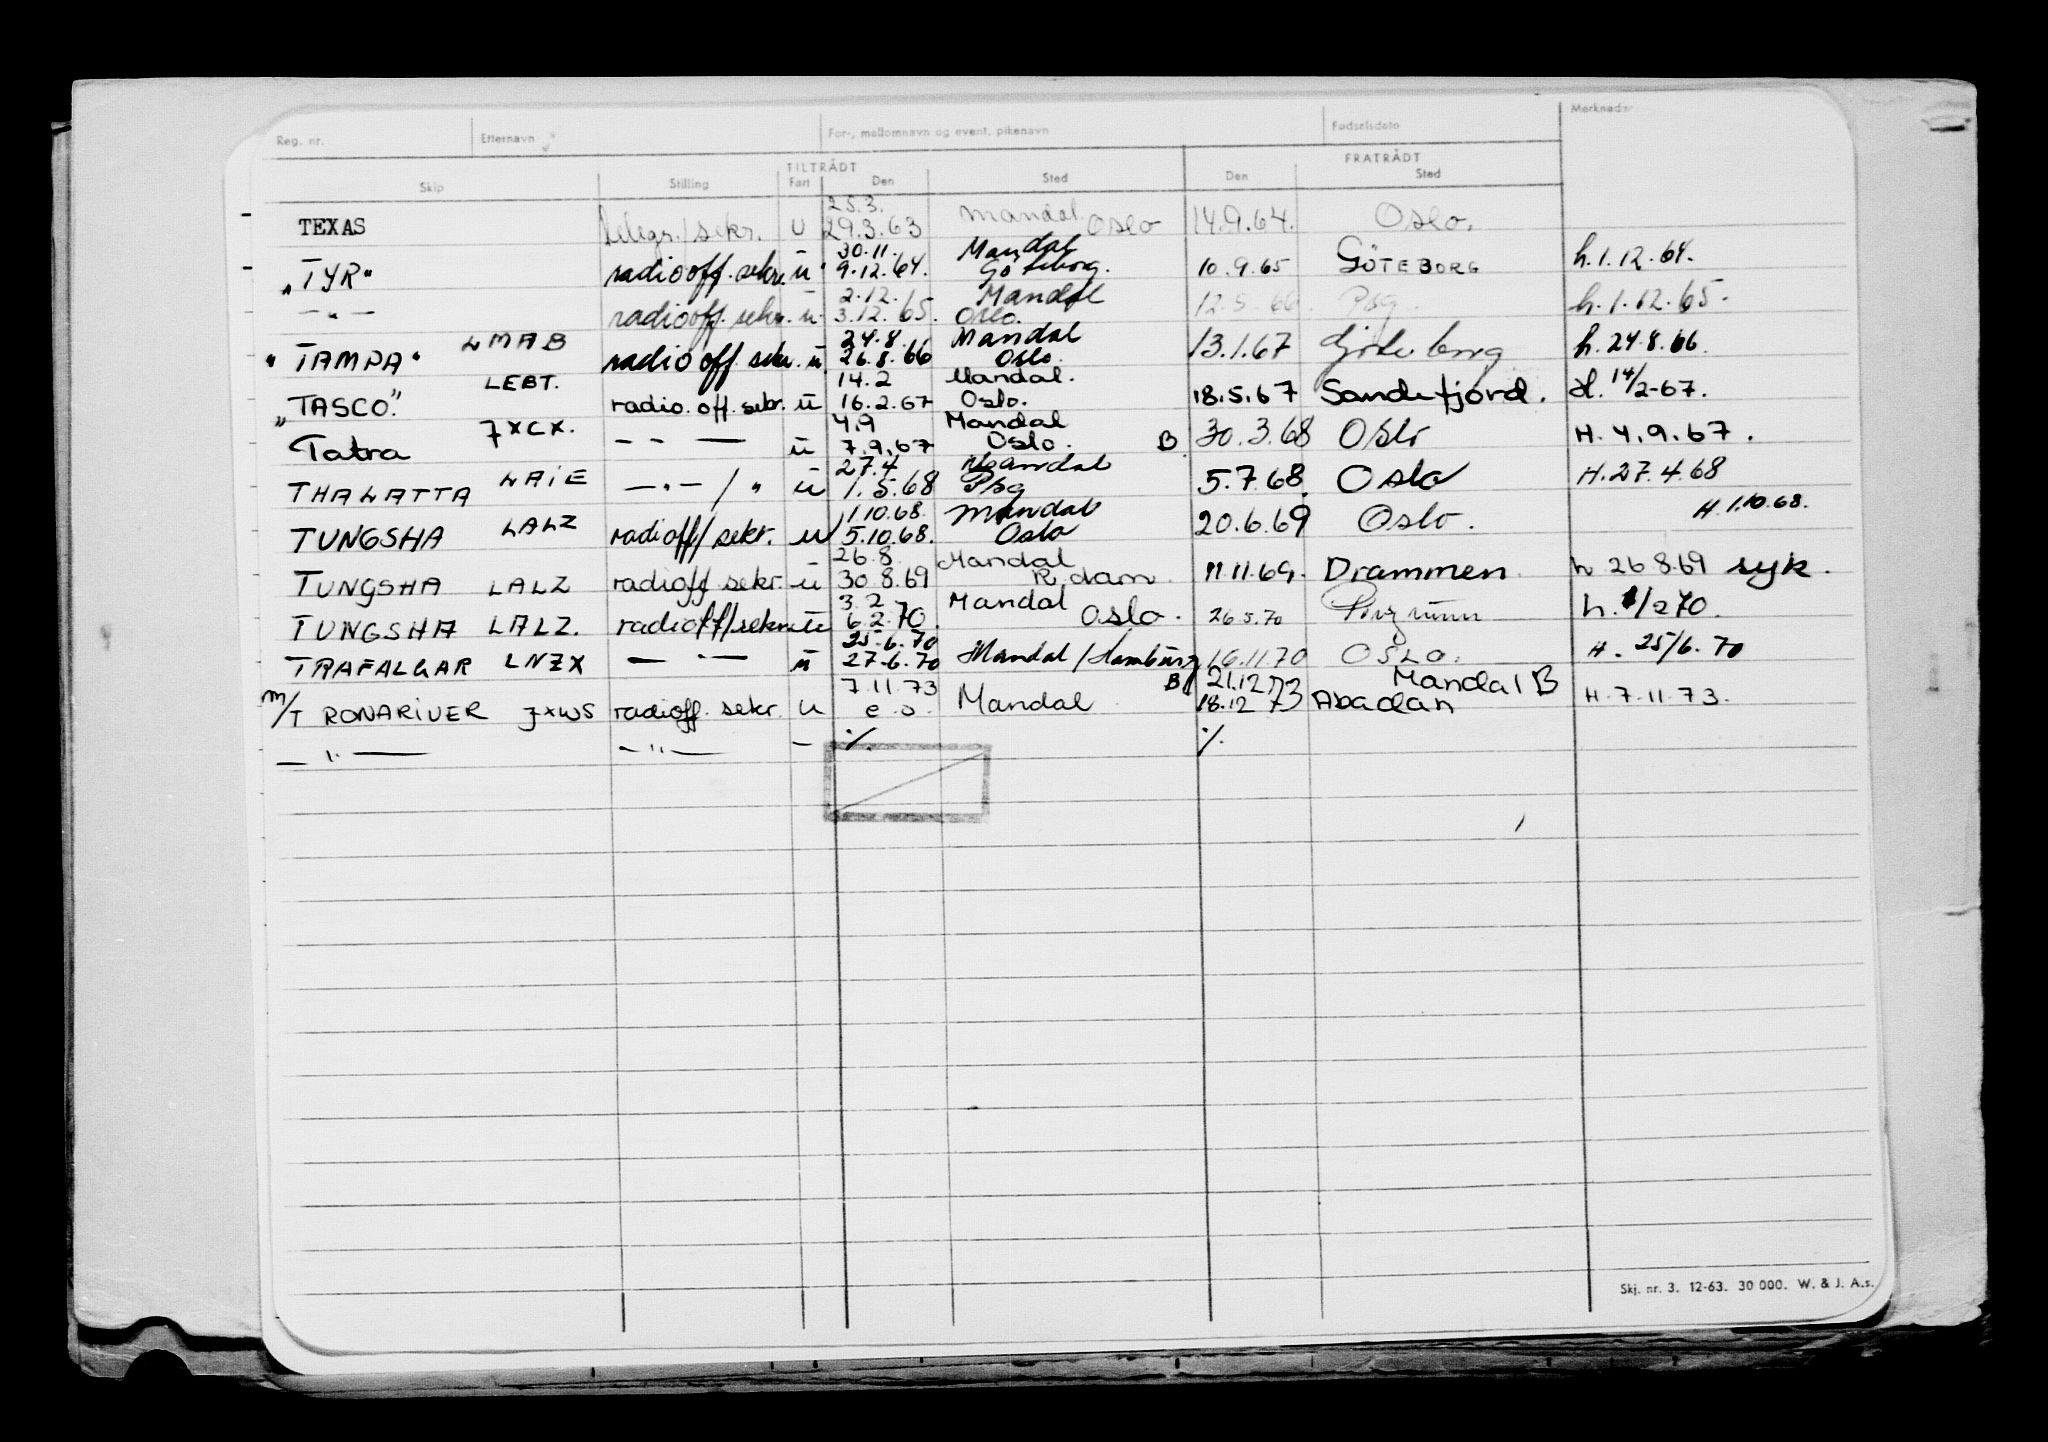 Reg. nr. Etternavn For-, mellomnavn og event. pikenavn Fødselsdato Merknader
TILTRÅDT FRATRÅDT
Skip Stilling Fart Den Sted Den Sted
25.3. Mandal
TEXAS telegr./sekr. u 29.3.63 Oslo 14.9.64. Oslo.
30.11. Mandal
„TYR" radiooff. sekr. u 9.12.64. Göteborg. 10.9.65 GÖTEBORG h.1.12.64.
2.12. Mandal
— " — radiooff. sekr. u 3.12.65. Oslo. 12.5.66. Psg. h.1.12.65.
24.8. Mandal
"TAMPA" LMAB radio off. sekr. u 26.8.66 Oslo. 13.1.67 Göteborg h.24.8.66.
14.2 Mandal.
„TASCO." LEBT. radio.off.sekr. u 16.2.67 Oslo. 18.5.67 Sandefjord. H. 14/2-67.
4.9 Mandal
Tatra JXCX. — - — u 7.9.67 Oslo. B 30.3.68 Oslo H. 4.9.67.
27.4 Mandal
THALATTA LAIE — " — / " u 1.5.68 Psg 5.7.68 Oslo H.27.4.68
1.10.68. Mandal H.1.10.68.
TUNGSHA LALZ radioff/sekr. u 5.10.68. Oslo 20.6.69 Oslo.
26.8 Mandal
TUNGSHA LALZ radioff. sekr. u 30.8.69 R.dam. 11.11.69. Drammen. h 26.8.69 syk.
3.2 Mandal
TUNGSHA LALZ. radioff/sekr. u 6.2.70. Oslo. 26.5.70 h. /2 70.
25.6.70
TRAFALGAR LNZX — " — u 27.6.70 Mandal/Hamburg 16.11.70 OSLO. H. 25/6.70
7.11.73 B 21.12.73 Mandal B
M/T RONARIVER JXWS radioff. sekr. u e.o. Mandal 18.12 73 Abadan H.7.11.73.
— " — — " — — ٪ ٪
Skj. nr. 3. 12-63. 30 000. W. & J. A.s.